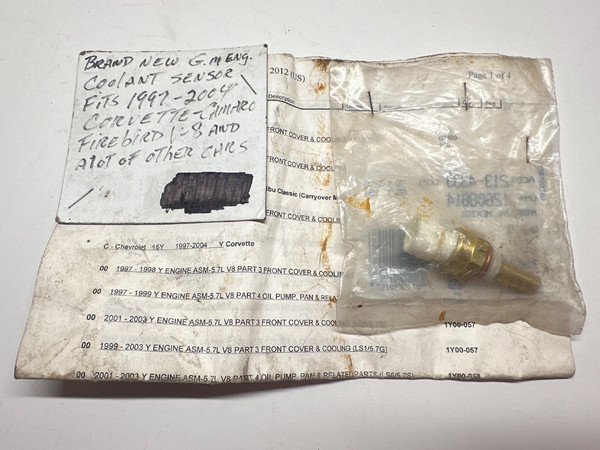 BRAND NEW G.M ENG.
COOLANT SENSOR
FITS 1997-2004
CORVETTE-CAMARO
FIREBIRD V-8 AND
A LOT OF OTHER CARS
2012 (US)
Page 1 of 4
Description
FRONT COVER & COOLING
FRONT COVER & COOLI
ibu Classic (Carryover M
C - Chevrolet 15Y 1997-2004 Y Corvette
00 1997 - 1998 Y ENGINE ASM-5.7L V8 PART 3 FRONT COVER & COOLING
00 1997 - 1999 Y ENGINE ASM-5.7L V8 PART 4 OIL PUMP, PAN & RELA
00 2001 - 2003 Y ENGINE ASM-5.7L V8 PART 3 FRONT COVER & COOLIN 1Y00-057
00 1999 - 2003 Y ENGINE ASM-5.7L V8 PART 3 FRONT COVER & COOLING (LS1/5.7G) 1Y00-057
00 2001 - 2003 Y ENGINE ASM-5.7L V8 PART 4 OIL PUMP, PAN & RELATED PARTS (LS6/5.7S) 1Y00-058